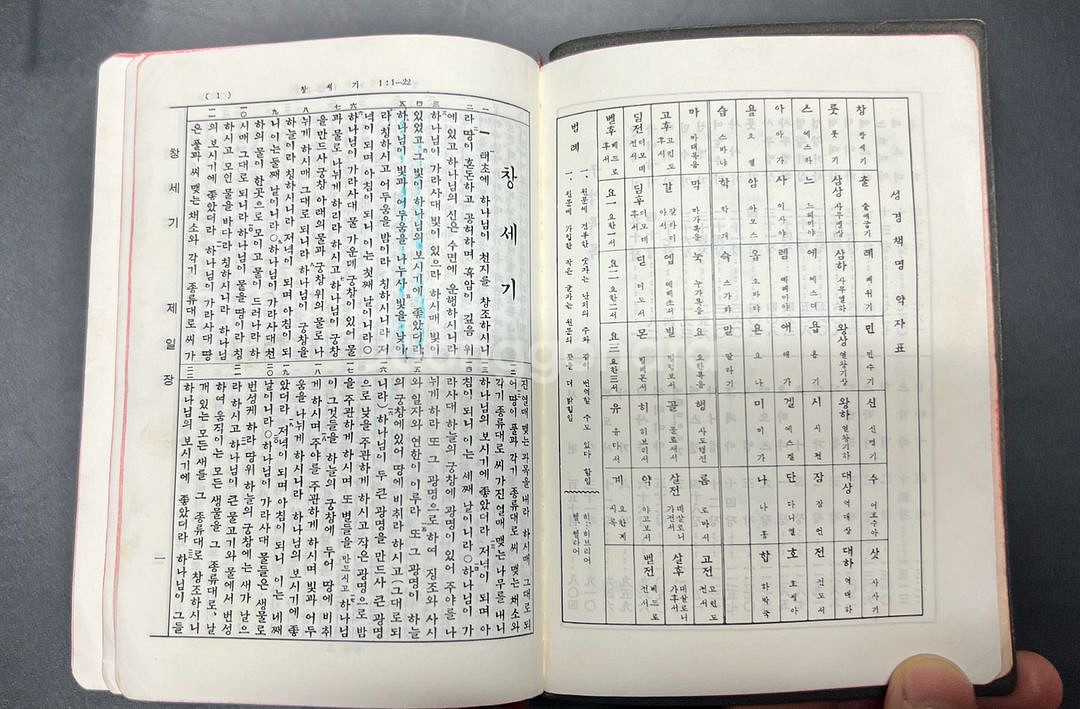 성경책명 약자표
창 창세기 출 출애굽기 레 레위기 민 민수기 신 신명기 수 여호수아 삿 사사기
룻 룻기 삼상 사무엘상 삼하 사무엘하 왕상 열왕기상 왕하 열왕기하 대상 역대상 대하 역대하
스 에스라 느 느헤미야 에 에스더 욥 욥기 시 시편 잠 잠언 전 전도서
아 아가 사 이사야 렘 예레미야 애 애가 겔 에스겔 단 다니엘 호 호세아
욜 요엘 암 아모스 옵 오바댜 욘 요나 미 미가 나 나훔 합 하박국
습 스바냐 학 학개 슥 스가랴 말 말라기
마 마태복음 막 마가복음 눅 누가복음 요 요한복음 행 사도행전 롬 로마서 고전 고린도전서
고후 고린도후서 갈 갈라디아서 엡 에베소서 빌 빌립보서 골 골로새서 살전 데살로니가전서 살후 데살로니가후서
딤전 디모데전서 딤후 디모데후서 딛 디도서 몬 빌레몬서 히 히브리서 약 야고보서 벧전 베드로전서
벧후 베드로후서 요一 요한一서 요二 요한二서 요三 요한三서 유 유다서 계 요한계시록
범례
一、원문에 견부한 숫자는 난외의 주와 같이 번역할 수도 있다 함임 히、히브리어
一、원문에 가입한 작은 글자는 원문의 뜻을 더 밝힘임 헬、헬라어
(1) 창세기 1:1—22
창세기
一 태초에 하나님이 천지를 창조하시니
二라 땅이 혼돈하고 공허하며 흑암이 깊음 위
에 있고 하나님의 신은 수면에 운행하시니라
三 하나님이 가라사대 빛이 있으라 하시매 빛이
四 있었고 그 빛이 하나님의 보시기에 좋았더라
五 하나님이 빛과 어두움을 나누사 빛을 낮이
라 칭하시고 어두움을 밤이라 칭하시니라 저
녁이 되며 아침이 되니 이는 첫째 날이니라○
六 하나님이 가라사대 물 가운데 궁창이 있어 물
七과 물로 나뉘게 하리라 하시고 하나님이 궁창
을 만드사 궁창 아래의 물과 궁창 위의 물로 나
八 뉘게 하시매 그대로 되니라 하나님이 궁창을
하늘이라 칭하시니라 저녁이 되며 아침이 되
九니 이는 둘째 날이니라○하나님이 가라사대 천
하의 물이 한곳으로 모이고 물이 드러나라 하
一〇시매 그대로 되니라 하나님이 물을 땅이라 칭
하시고 모인 물을 바다라 칭하시니라 하나님
一一의 보시기에 좋았더라 하나님이 가라사대 땅
은 풀과 씨 맺는 채소와 각기 종류대로 씨 가
진 열매 맺는 과목을 내라 하시매 그대로 되
一二어 땅이 풀과 각기 종류대로 씨 맺는 채소와
각기 종류대로 씨 가진 열매 맺는 나무를 내니
一三하나님의 보시기에 좋았더라 저녁이 되며 아
一四침이 되니 이는 세째 날이니라○하나님이 가
라사대 하늘의 궁창에 광명이 있어 주야를 나
뉘게 하라 또 그 광명으로 하여 징조와 사시
一五와 일자와 연한이 이루라 또 그 광명이 하늘
의 궁창에 있어 땅에 비취라 하시고(그대로 되
一六니라) 하나님이 두 큰 광명을 만드사 큰 광명
으로 낮을 주관하게 하시고 작은 광명으로 밤
一七을 주관하게 하시며 또 별들을 만드시고 하나님
이 그것들을 하늘의 궁창에 두어 땅에 비취
一八게 하시며 주야를 주관하게 하시며 빛과 어두
움을 나뉘게 하시니라 하나님의 보시기에 좋
一九았더라 저녁이 되며 아침이 되니 이는 네째
二〇날이니라○하나님이 가라사대 물들은 생물로
번성케 하라 땅위 하늘의 궁창에는 새가 날으
二一라 하시고 하나님이 큰 물고기와 물에서 번성
하여 움직이는 모든 생물을 그 종류대로, 날
개 있는 모든 새를 그 종류대로 창조하시니
二二하나님의 보시기에 좋았더라 하나님이 그들
창세기 제일장
一